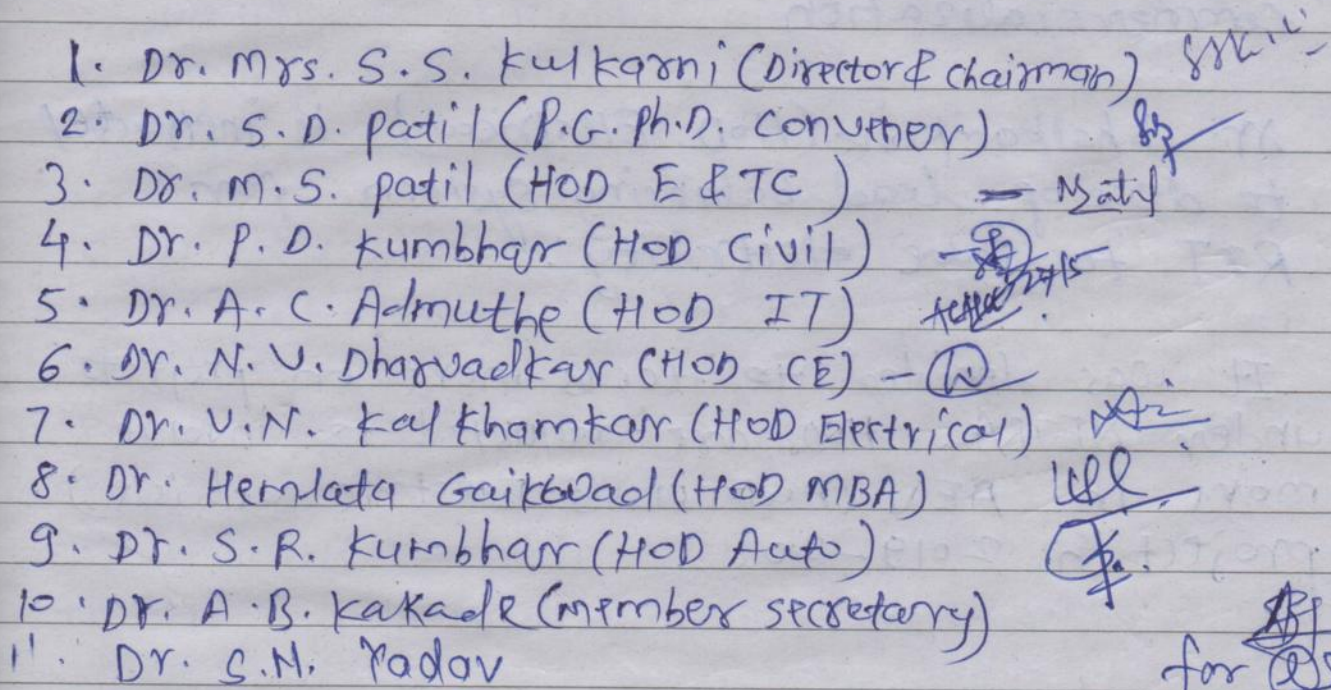 1. Dr. Mrs. S.S. Kulkarni (Director & chairman)
2 Dr. S.D. patil (P.G. Ph.D. Convener)
3. Dr. M.S. patil (HOD E & TC) - Mpatil
4. Dr. P.D. Kumbhar (HOD Civil) -
5. Dr. A.C. Admuthe (HOD IT)
6. Dr. N.V. Dharvadkar (HOD CE) -
7. Dr. V.N. Kalkhamkar (HOD Electrical)
8. Dr. Hemlata Gaikwad (HOD MBA)
9. Dr. S.R. Kumbhar (HOD Auto)
10. Dr. A.B. Kakade (member secretary)
11. Dr. S.N. Yadav for